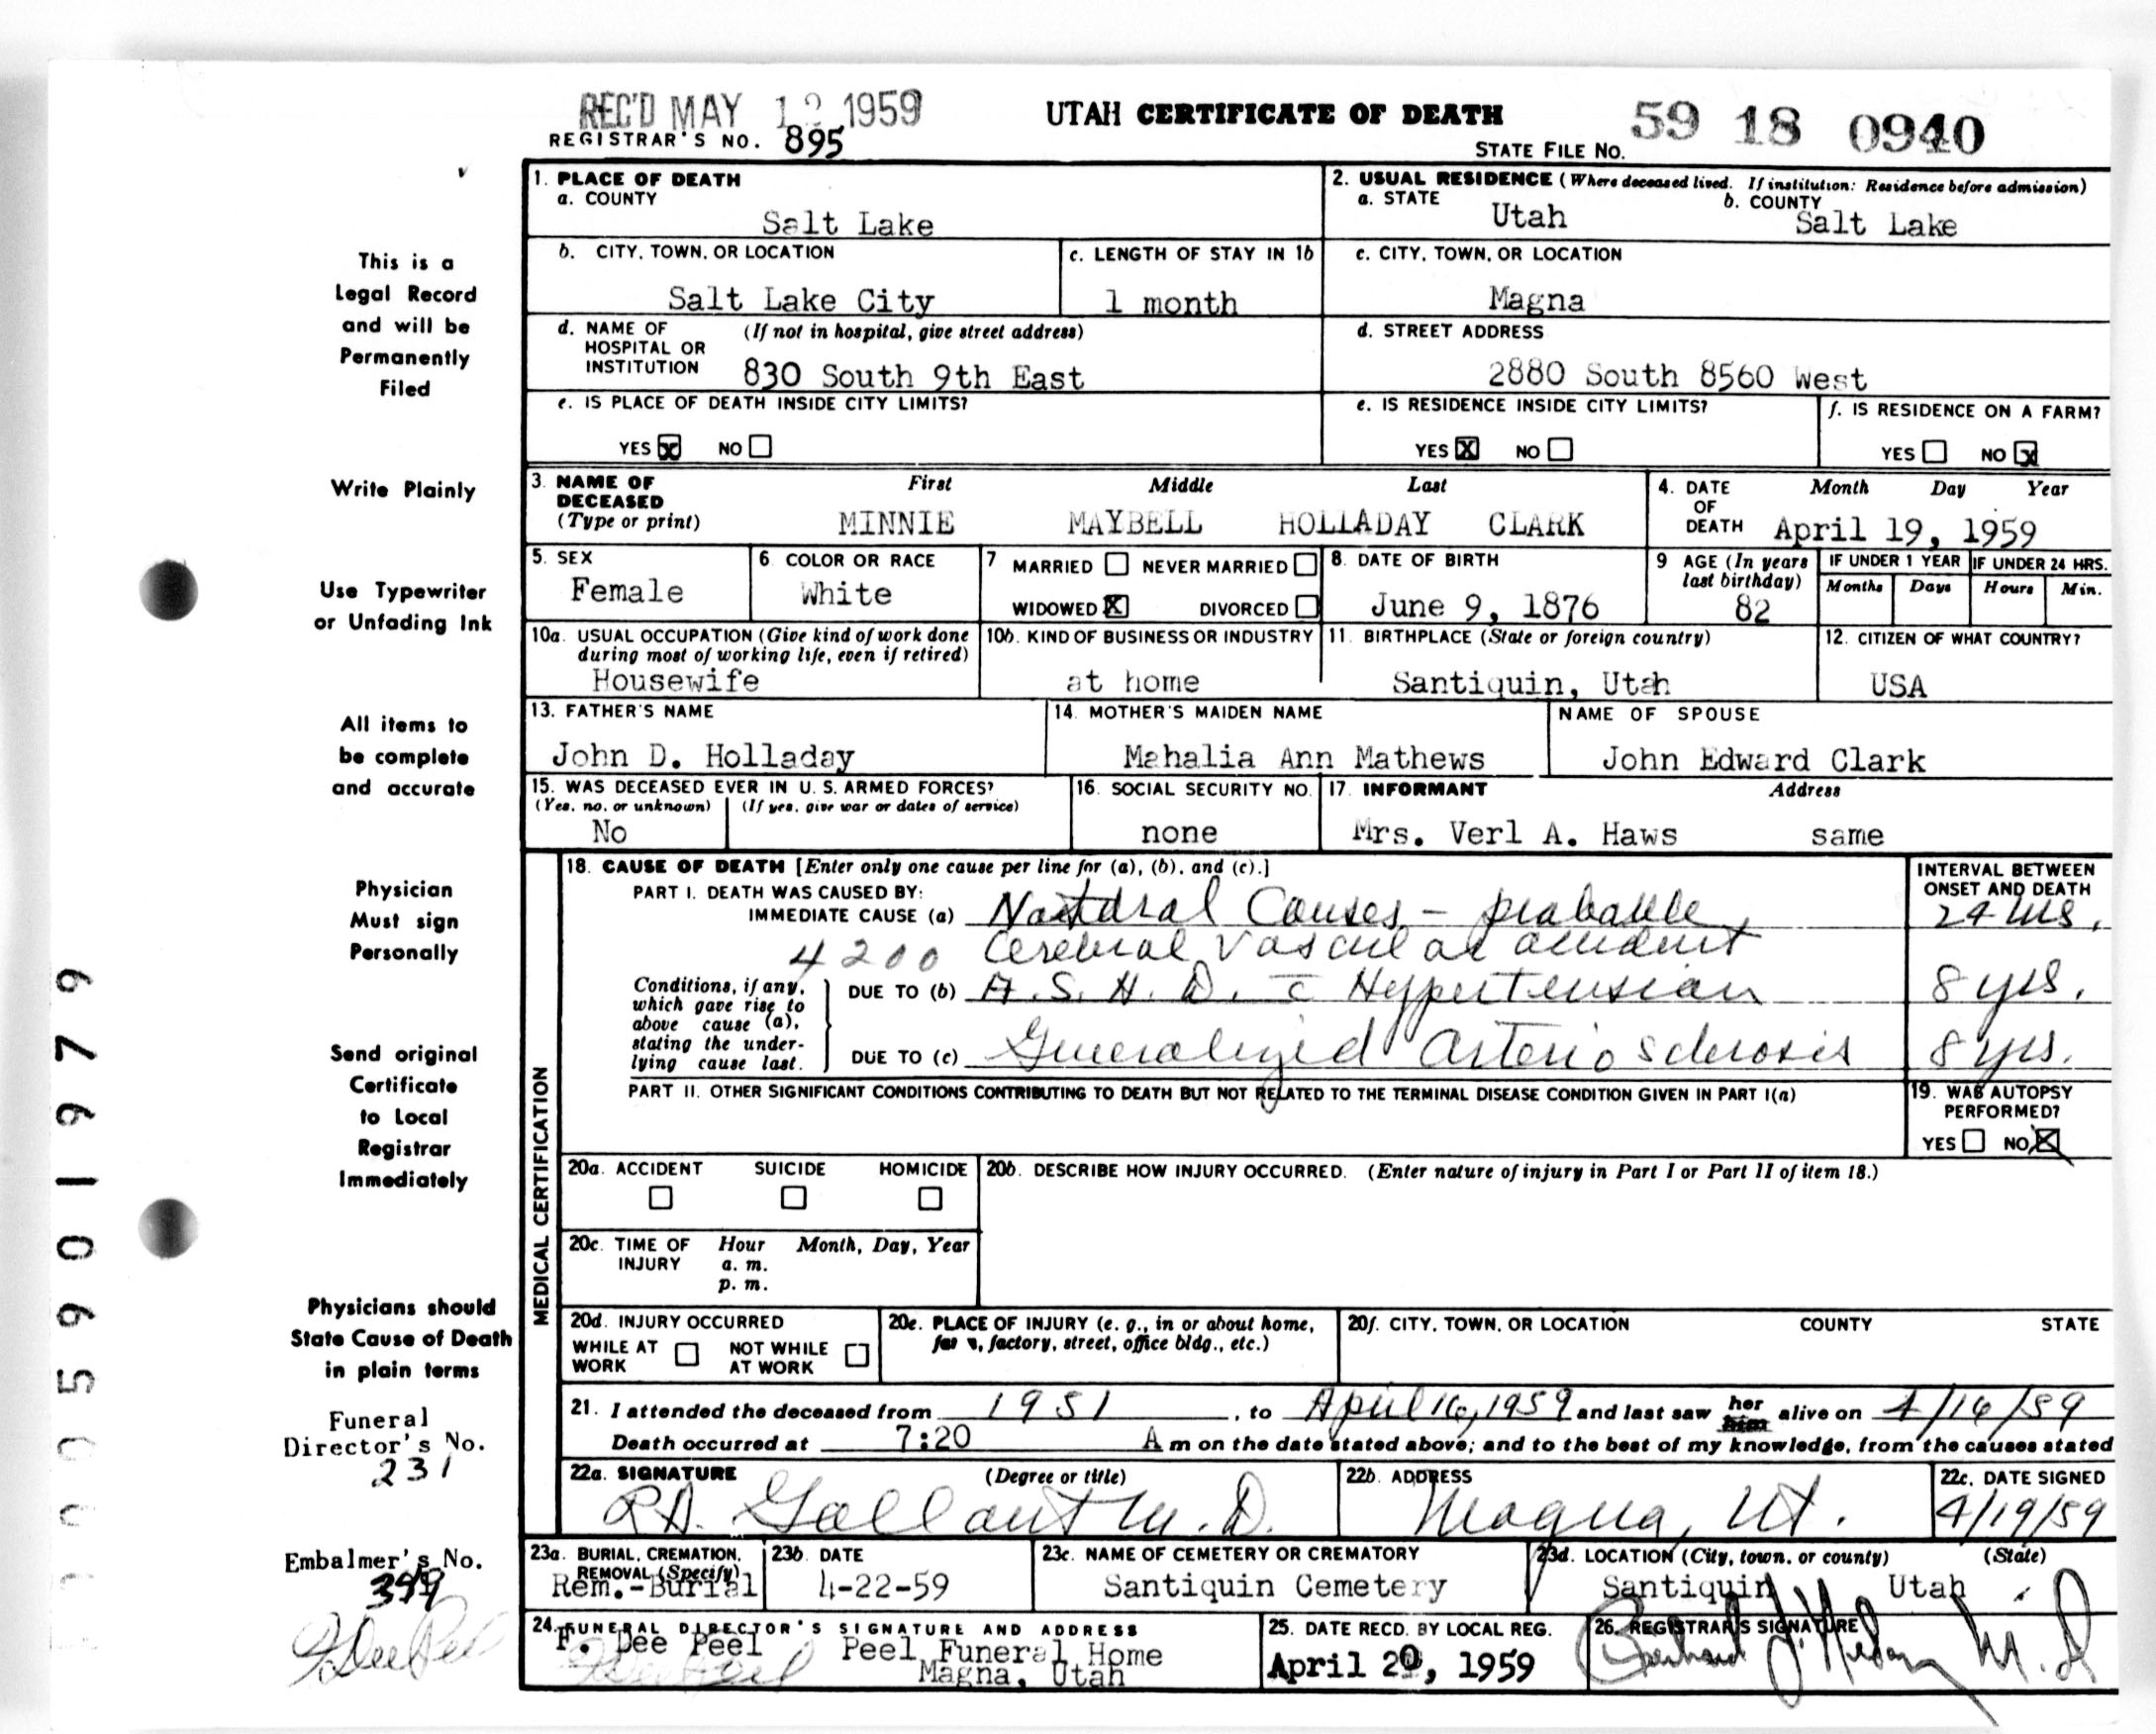 REC'D MAY 12 1959
UTAH CERTIFICATE OF DEATH
59 18 0940
REGISTRAR'S NO. 895
STATE FILE NO.
1. PLACE OF DEATH
a. COUNTY
Salt Lake
2. USUAL RESIDENCE (Where deceased lived. If institution: Residence before admission)
a. STATE
Utah
b. COUNTY
Salt Lake
b. CITY, TOWN, OR LOCATION
Salt Lake City
c. LENGTH OF STAY IN 1b
1 month
c. CITY, TOWN, OR LOCATION
Magna
d. NAME OF HOSPITAL OR INSTITUTION
(If not in hospital, give street address)
830 South 9th East
d. STREET ADDRESS
2880 South 8560 West
e. IS PLACE OF DEATH INSIDE CITY LIMITS?
YES X NO
e. IS RESIDENCE INSIDE CITY LIMITS?
YES X NO
f. IS RESIDENCE ON A FARM?
YES NO X
3. NAME OF DECEASED
(Type or print)
First Middle Last
MINNIE MAYBELL HOLLADAY CLARK
4. DATE OF DEATH
Month Day Year
April 19, 1959
5. SEX
Female
6. COLOR OR RACE
White
7. MARRIED NEVER MARRIED
WIDOWED X DIVORCED
8. DATE OF BIRTH
June 9, 1876
9 AGE (In years last birthday)
82
IF UNDER 1 YEAR
Months Days
IF UNDER 24 HRS.
Hours Min.
10a. USUAL OCCUPATION (Give kind of work done during most of working life, even if retired)
Housewife
10b. KIND OF BUSINESS OR INDUSTRY
at home
11. BIRTHPLACE (State or foreign country)
Santiquin, Utah
12. CITIZEN OF WHAT COUNTRY?
USA
13. FATHER'S NAME
John D. Holladay
14. MOTHER'S MAIDEN NAME
Mahalia Ann Mathews
NAME OF SPOUSE
John Edward Clark
15. WAS DECEASED EVER IN U. S. ARMED FORCES?
(Yes, no, or unknown) (If yes, give war or dates of service)
No
16. SOCIAL SECURITY NO.
none
17. INFORMANT Address
Mrs. Verl A. Haws same
MEDICAL CERTIFICATION
18. CAUSE OF DEATH [Enter only one cause per line for (a), (b), and (c).]
INTERVAL BETWEEN ONSET AND DEATH
PART I. DEATH WAS CAUSED BY:
IMMEDIATE CAUSE (a) Natural Causes - probable
24 hrs.
4200 Cerebral vascular accident
Conditions, if any, which gave rise to above cause (a), stating the underlying cause last.
DUE TO (b) A.S.H.D. c̄ Hypertension
8 yrs.
DUE TO (c) Generalized Arteriosclerosis
8 yrs.
PART II. OTHER SIGNIFICANT CONDITIONS CONTRIBUTING TO DEATH BUT NOT RELATED TO THE TERMINAL DISEASE CONDITION GIVEN IN PART I(a)
19. WAS AUTOPSY PERFORMED?
YES NO X
20a. ACCIDENT SUICIDE HOMICIDE
20b. DESCRIBE HOW INJURY OCCURRED. (Enter nature of injury in Part I or Part II of item 18.)
20c. TIME OF INJURY
Hour Month, Day, Year
a. m.
p. m.
20d. INJURY OCCURRED
WHILE AT WORK NOT WHILE AT WORK
20e. PLACE OF INJURY (e. g., in or about home, farm, factory, street, office bldg., etc.)
20f. CITY, TOWN, OR LOCATION COUNTY STATE
21. I attended the deceased from 1951, to April 16, 1959 and last saw her him alive on 4/16/59
Death occurred at 7:20 A m on the date stated above; and to the best of my knowledge, from the causes stated
22a. SIGNATURE (Degree or title)
Gallant M.D.
22b. ADDRESS
Magna, Ut.
22c. DATE SIGNED
4/19/59
23a. BURIAL, CREMATION, REMOVAL (Specify)
Rem.-Burial
23b. DATE
4-22-59
23c. NAME OF CEMETERY OR CREMATORY
Santiquin Cemetery
23d. LOCATION (City, town, or county) (State)
Santiquin Utah
24. FUNERAL DIRECTOR'S SIGNATURE AND ADDRESS
F. Dee Peel Peel Funeral Home
Magna, Utah
25. DATE RECD. BY LOCAL REG.
April 20, 1959
26. REGISTRAR'S SIGNATURE
M.D
This is a
Legal Record
and will be
Permanently
Filed
Write Plainly
Use Typewriter
or Unfading Ink
All items to
be complete
and accurate
Physician
Must sign
Personally
Send original
Certificate
to Local
Registrar
Immediately
Physicians should
State Cause of Death
in plain terms
Funeral
Director's No.
231
Embalmer's No.